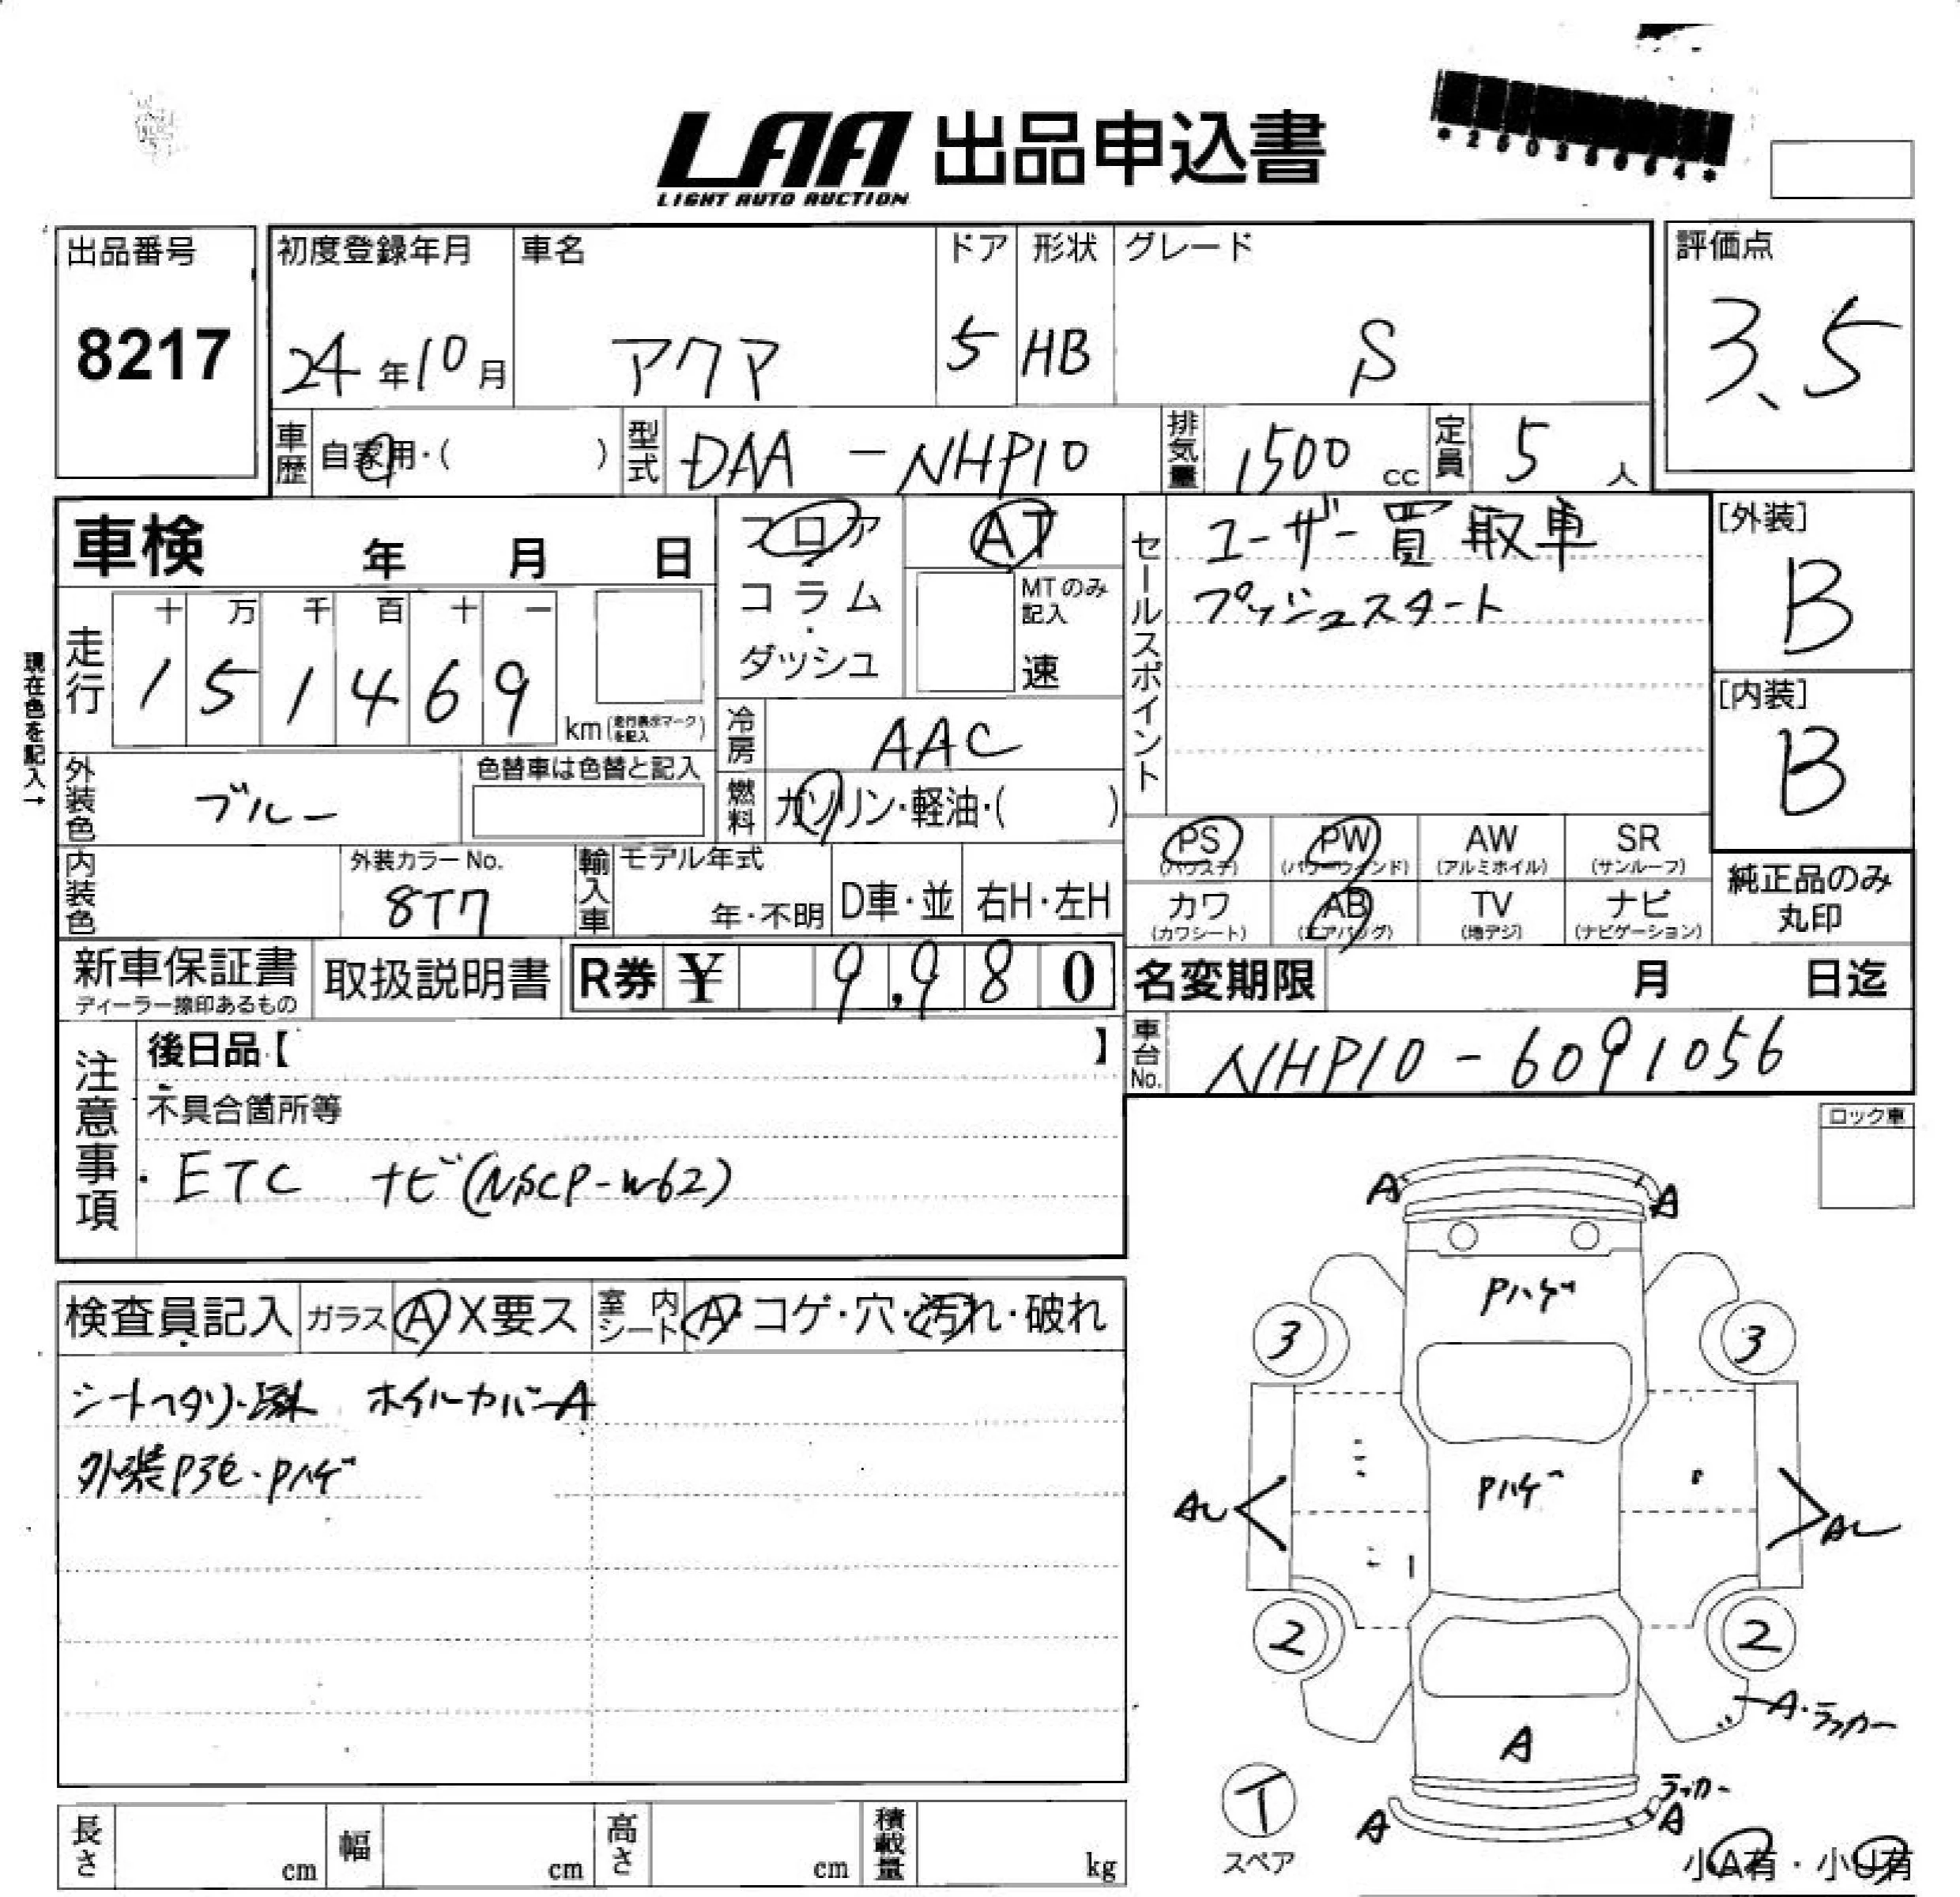 LAA 出品申込書
LIGHT AUTO AUCTION
出品番号
8217
初度登録年月
24年10月
車名
アクア
ドア
5
形状
HB
グレード
S
評価点
3.5
車歴
自家用・( )
型式
DAA-NHP10
排気量
1500 cc
定員
5人
車検 年 月 日
フロア
コラム・
ダッシュ
AT
MTのみ記入
速
セールスポイント
ユーザー買取車
プッシュスタート
[外装]
B
[内装]
B
現在色を記入→
走行
十 万 千 百 十 一
1 5 1 4 6 9
km(走行表示マークを記入)
冷房
AAC
外装色
ブルー
色替車は色替と記入
燃料
ガソリン・軽油・( )
PS
(パワステ)
PW
(パワーウインド)
AW
(アルミホイル)
SR
(サンルーフ)
カワ
(カワシート)
AB
(エアバッグ)
TV
(地デジ)
ナビ
(ナビゲーション)
純正品のみ
丸印
内装色
外装カラーNo.
8T7
輸入車
モデル年式
年・不明
D車・並
右H・左H
新車保証書
ディーラー捺印あるもの
取扱説明書
R券 ¥ 9,980
名変期限 月 日迄
車台No.
NHP10-6091056
注意事項
後日品【 】
不具合箇所等
・ETC ナビ(NSCP-W62)
ロック車
検査員記入
ガラス
A X要ス
室内シート
A・コゲ・穴・汚れ・破れ
ホイルカバーA
外装
Pハゲ
A
A
Pハゲ
3
3
Pハゲ
2
2
A・ラッカー
A
ラッカー
A
A
T
スペア
小A有・小U有
長さ cm
幅 cm
高さ cm
積載量 kg